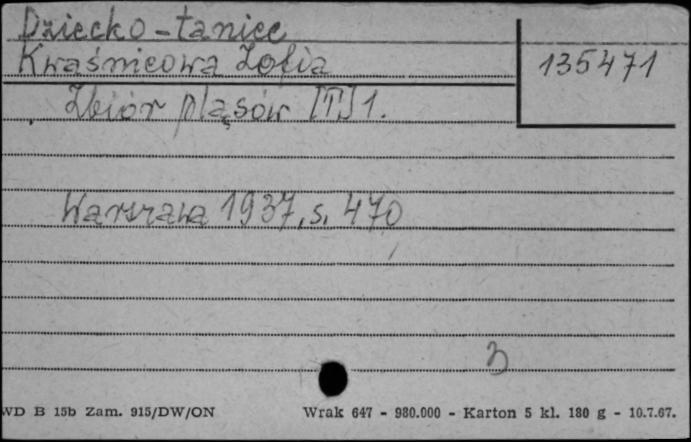 Dziecko - taniec
Kwaśnicowa Zofia
135471
Zbiór pląsów [T.] 1.
Warszawa 1937, s. 470
3
WD B 15b Zam. 915/DW/ON
Wrak 647 - 980.000 - Karton 5 kl. 180 g - 10.7.67.